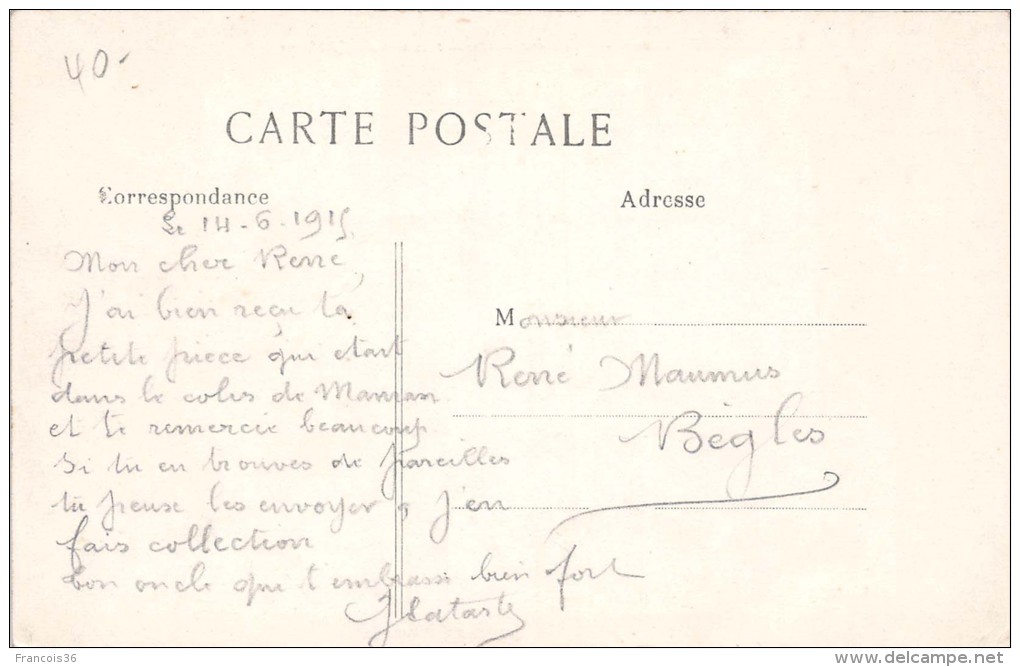 40-
CARTE POSTALE
Correspondance
Adresse
Le 14-6-1915
Mon cher René,
J'ai bien reçu ta
petite pièce qui était
dans le colis de Maman
et te remercie beaucoup.
Si tu en trouves de pareilles
tu peuse les envoyer, j'en
fais collection
ton oncle que t'embrasse bien fort
Monsieur
René Maumus
Bègles
Francois36
www.delcampe.net